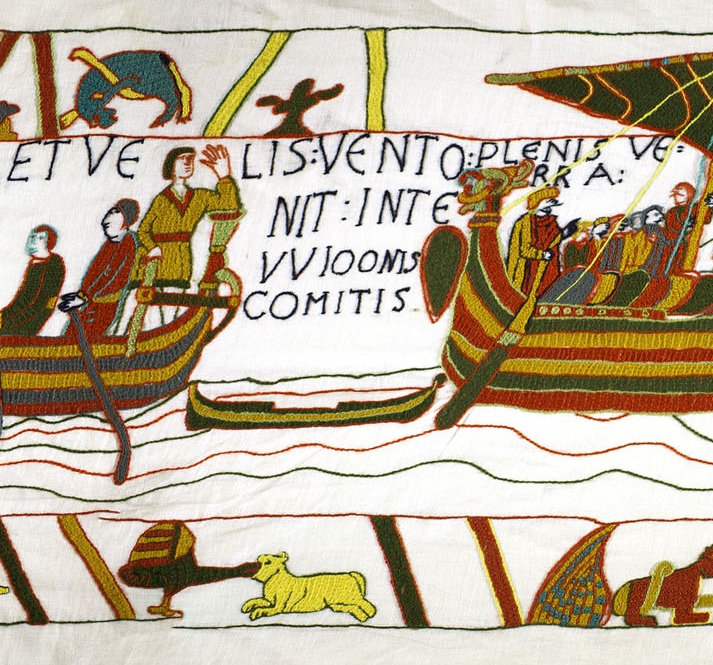 ET VE LIS:VENTO:PLENIS VE=
NIT:INTE RRA:
VVIOONIS
COMITIS